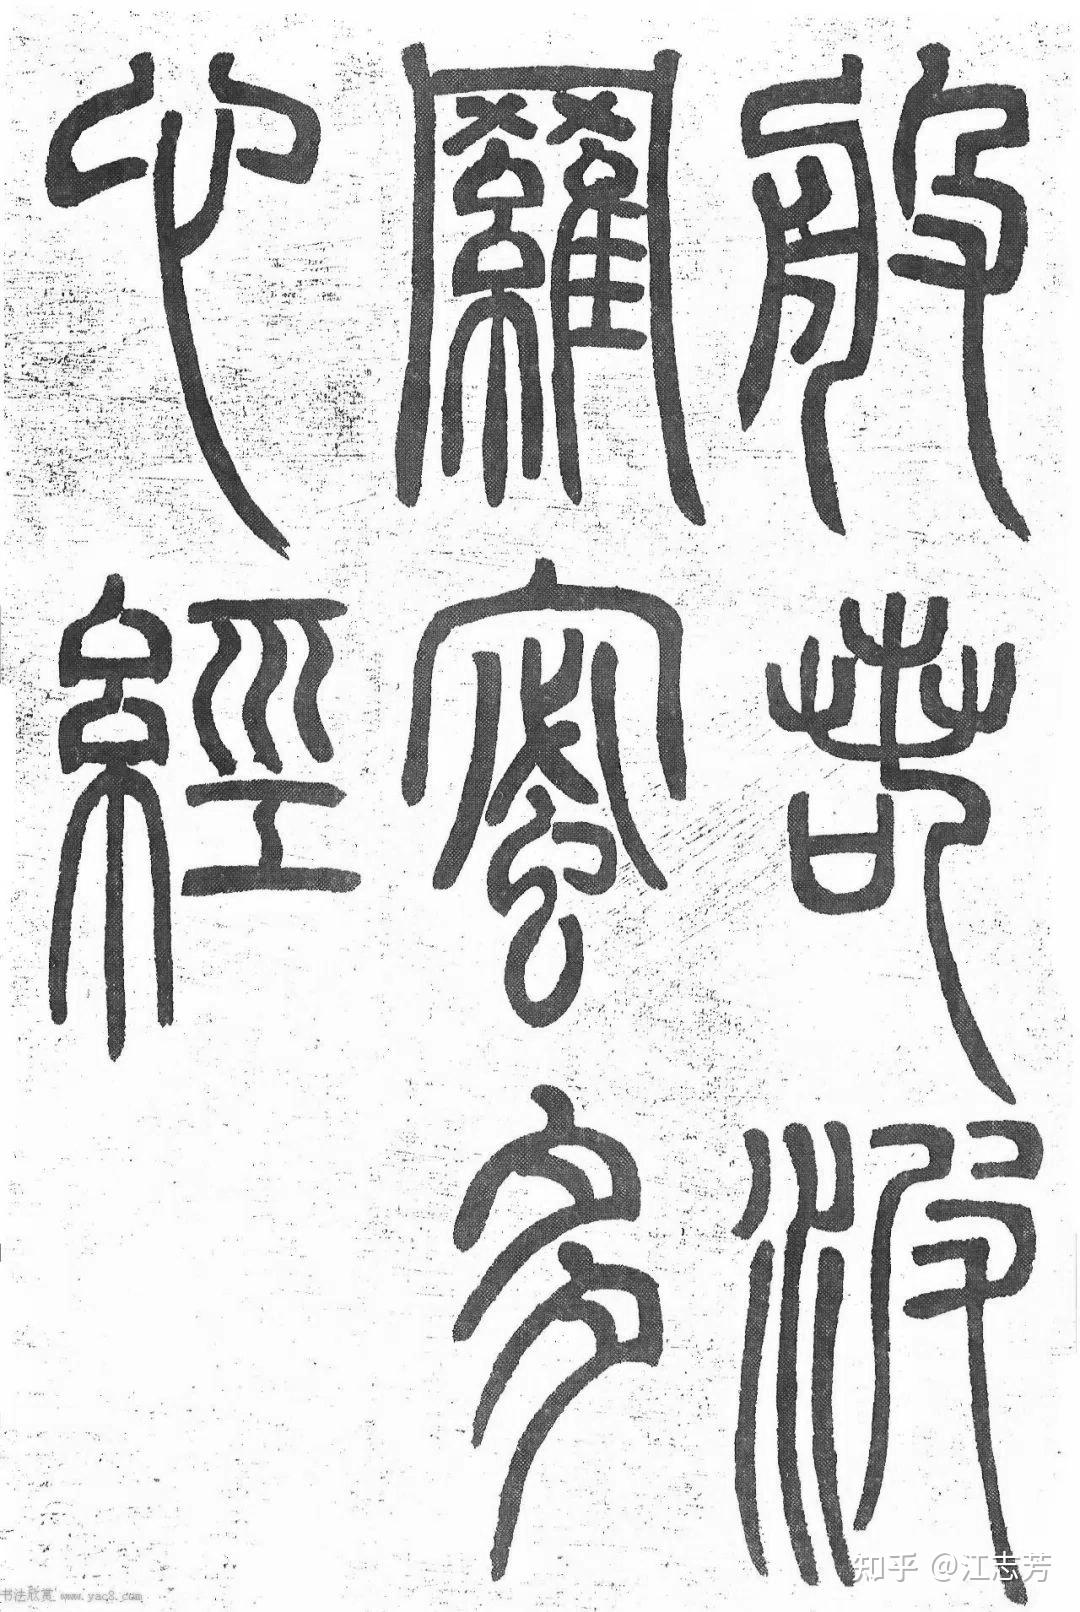 般若波
羅蜜多
心經
知乎 @江志芳
书法欣赏 www.yac8.com